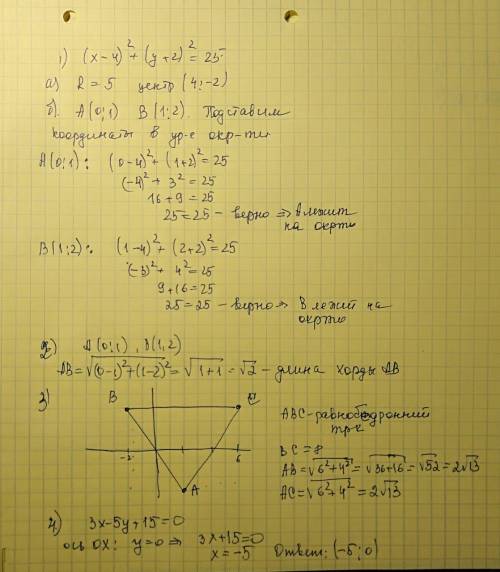 1) (x-4)² + (y+2)² = 25
а) R = 5 центр (4; -2)
б. A(0;1) B(1;2). Подставим
координаты в ур-е окр-ти
A(0;1): (0-4)² + (1+2)² = 25
(-4)² + 3² = 25
16 + 9 = 25
25 = 25 - верно ⇒ лежит
на окр-ти
B(1;2): (1-4)² + (2+2)² = 25
(-3)² + 4² = 25
9 + 16 = 25
25 = 25 - верно ⇒ B лежит на
окр-ти
2) A(0;1), B(1,2)
AB = √(0-1)²+(1-2)² = √1+1 = √2 - длина хорды AB
3)
B C
-2 6
A
ABC - равнобедренный
тр-к
BC = 8
AB = √6²+4² = √36+16 = √52 = 2√13
AC = √6²+4² = 2√13
4) 3x-5y+15=0
ось OX: y=0 ⇒ 3x+15=0
x=-5 Ответ: (-5;0)